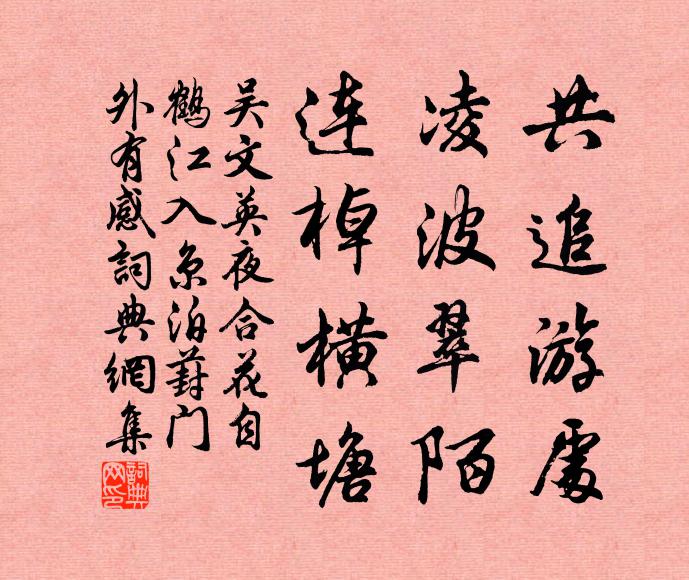 共追游處
凌波翠陌
連棹橫塘
吴文英夜合花自
鶴江入京泊葑門
外有感詞典網集
詞典网印